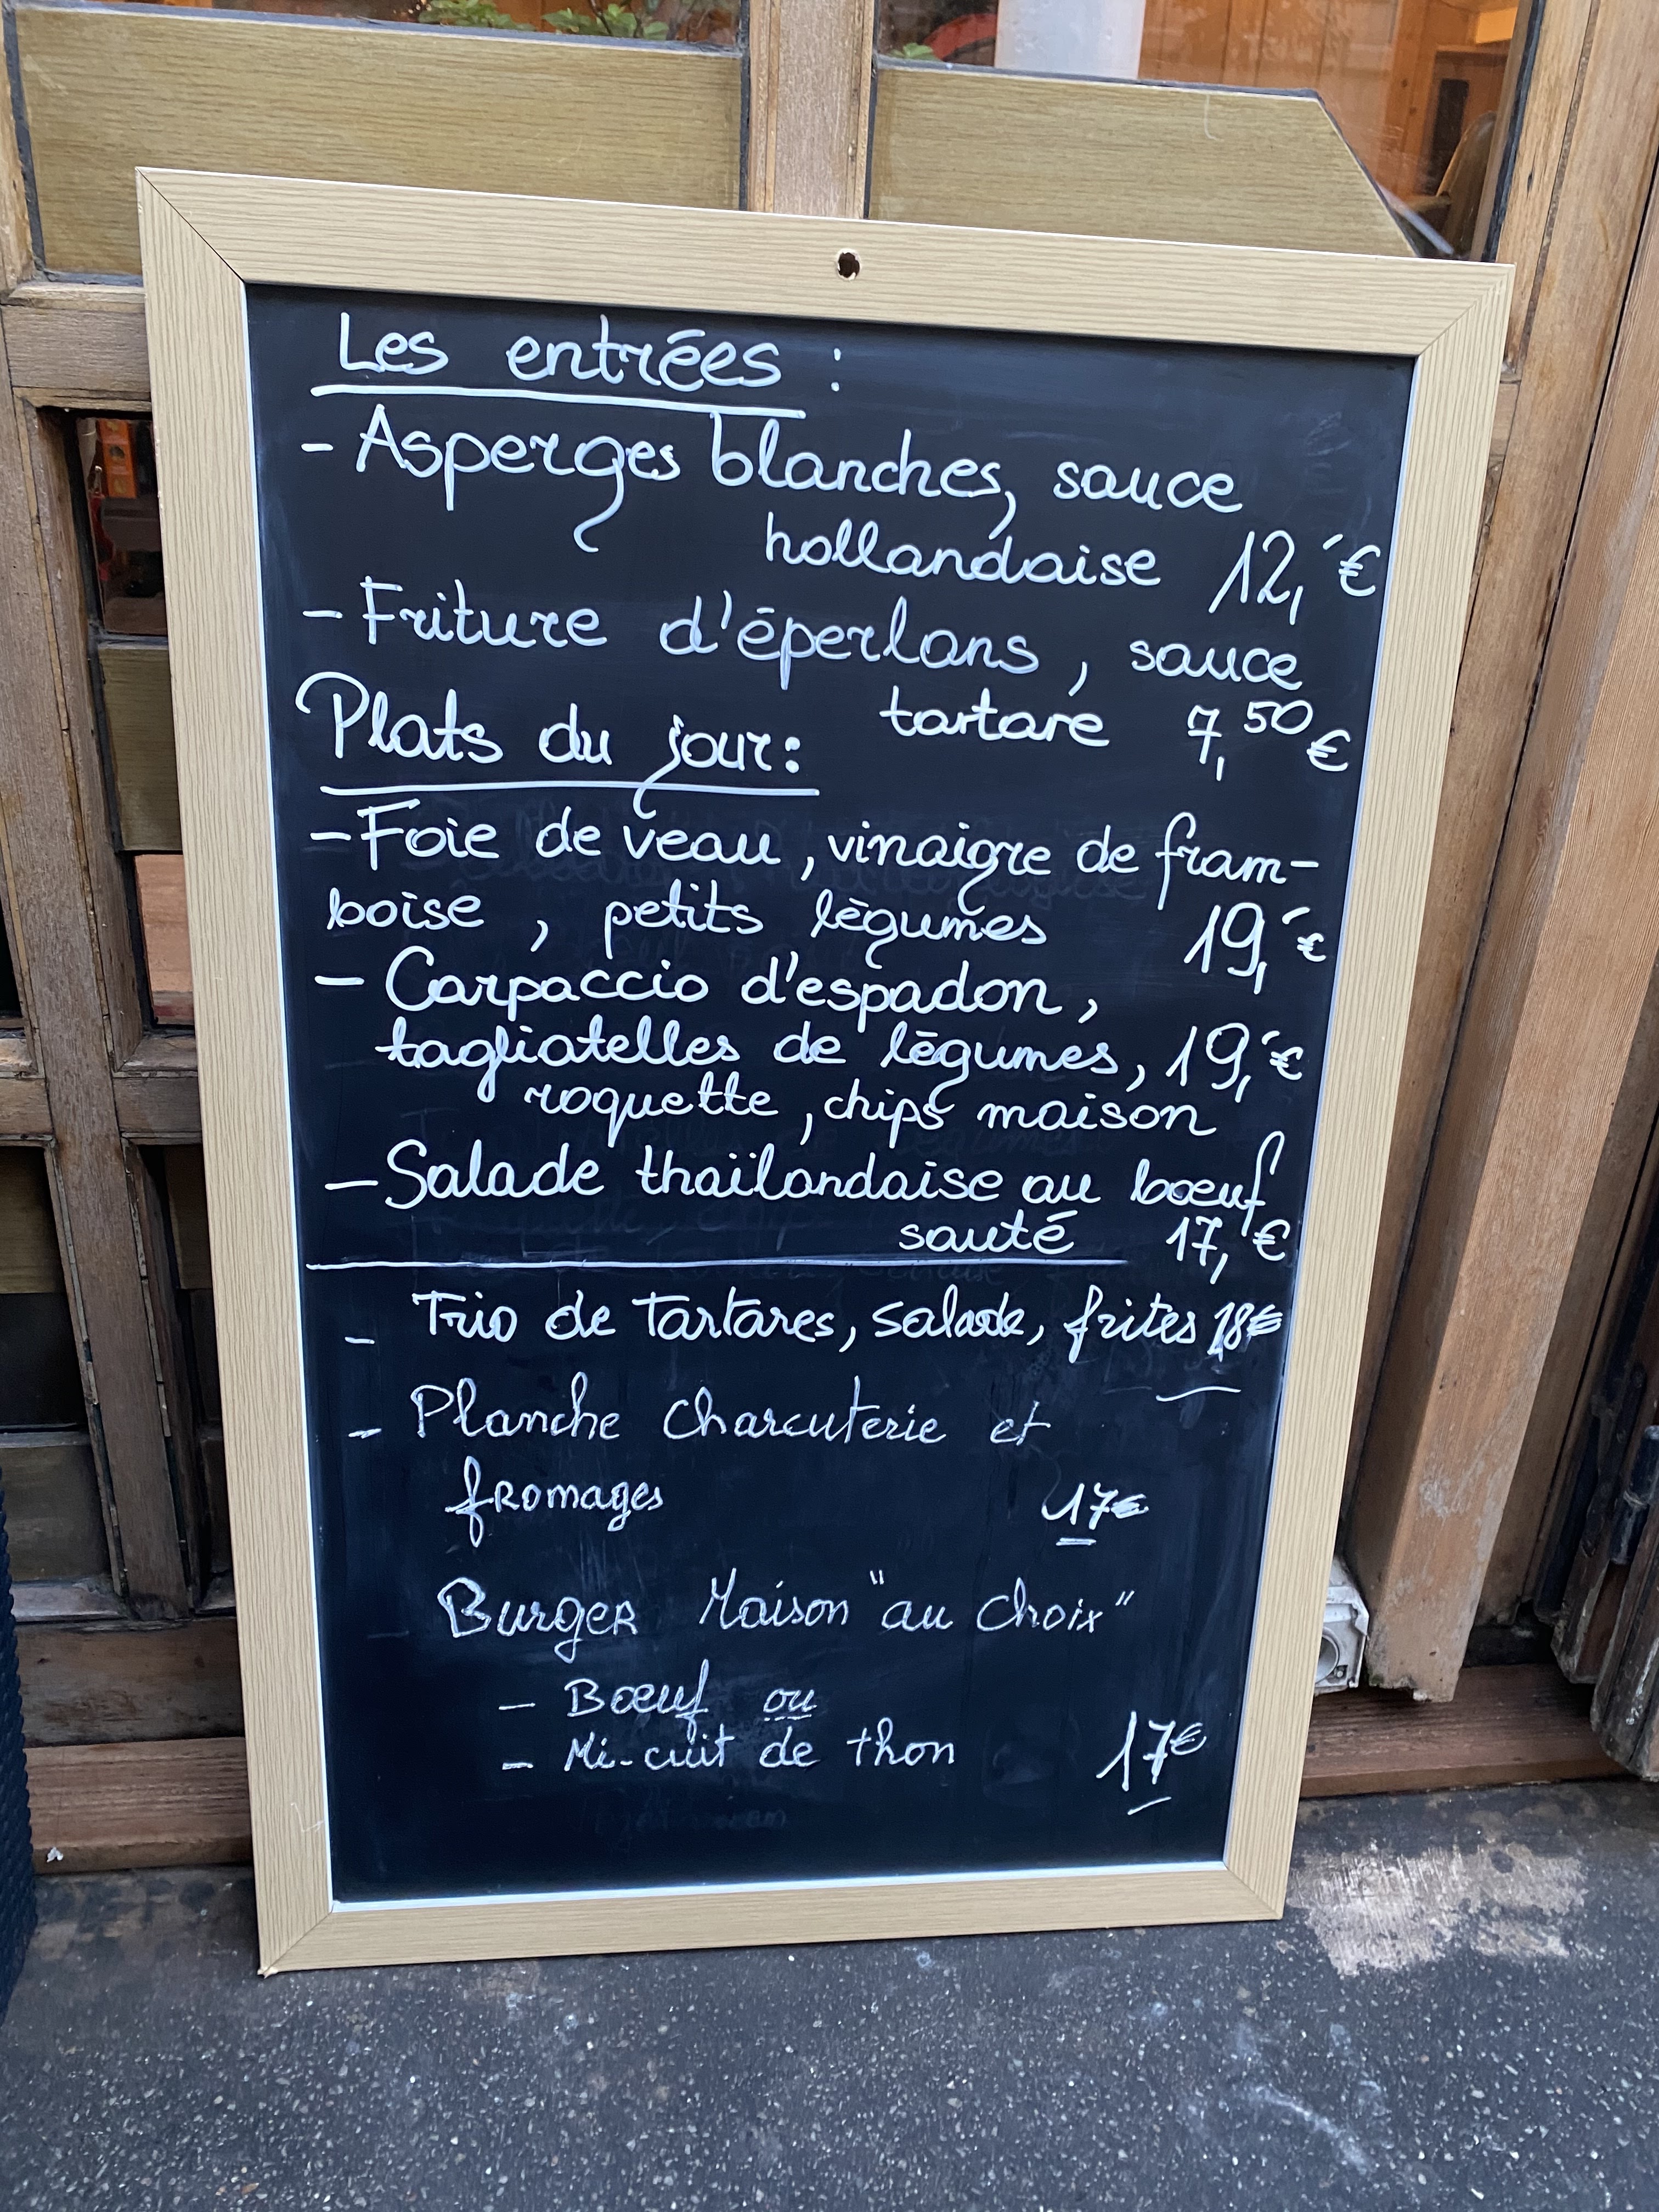 Les entrées :
- Asperges blanches, sauce
hollandaise 12,-€
- Friture d'éperlans, sauce
tartare 7,50€
Plats du jour:
- Foie de veau, vinaigre de fram-
boise, petits légumes 19,-€
- Carpaccio d'espadon,
tagliatelles de légumes, 19,-€
roquette, chips maison
- Salade thaïlandaise au bœuf
sauté 17,-€
- Trio de Tartares, salade, frites 18€
- Planche Charcuterie et
fromages 17€
Burger Maison "au choix"
- Bœuf ou
- Mi-cuit de thon 17€